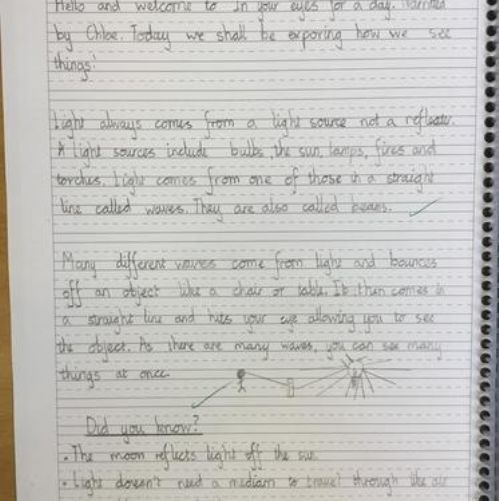 Hello and welcome to In your eyes for a day. Narrated
by Chloe. Today we shall be exporing how we see
things!
Light always comes from a light source not a reflector.
A light sources include bulbs, the sun, lamps, fires and
torches. Light comes from one of those in a straight
line called waves. They are also called beams.
Many different waves come from light and bounces
off an object like a chair or table. It then comes in
a straight line and hits your eye allowing you to see
the object. As there are many waves, you can see many
things at once.
Did you know?
• The moon reflects light off the sun.
• Light doesn't need a medium to travel through like air